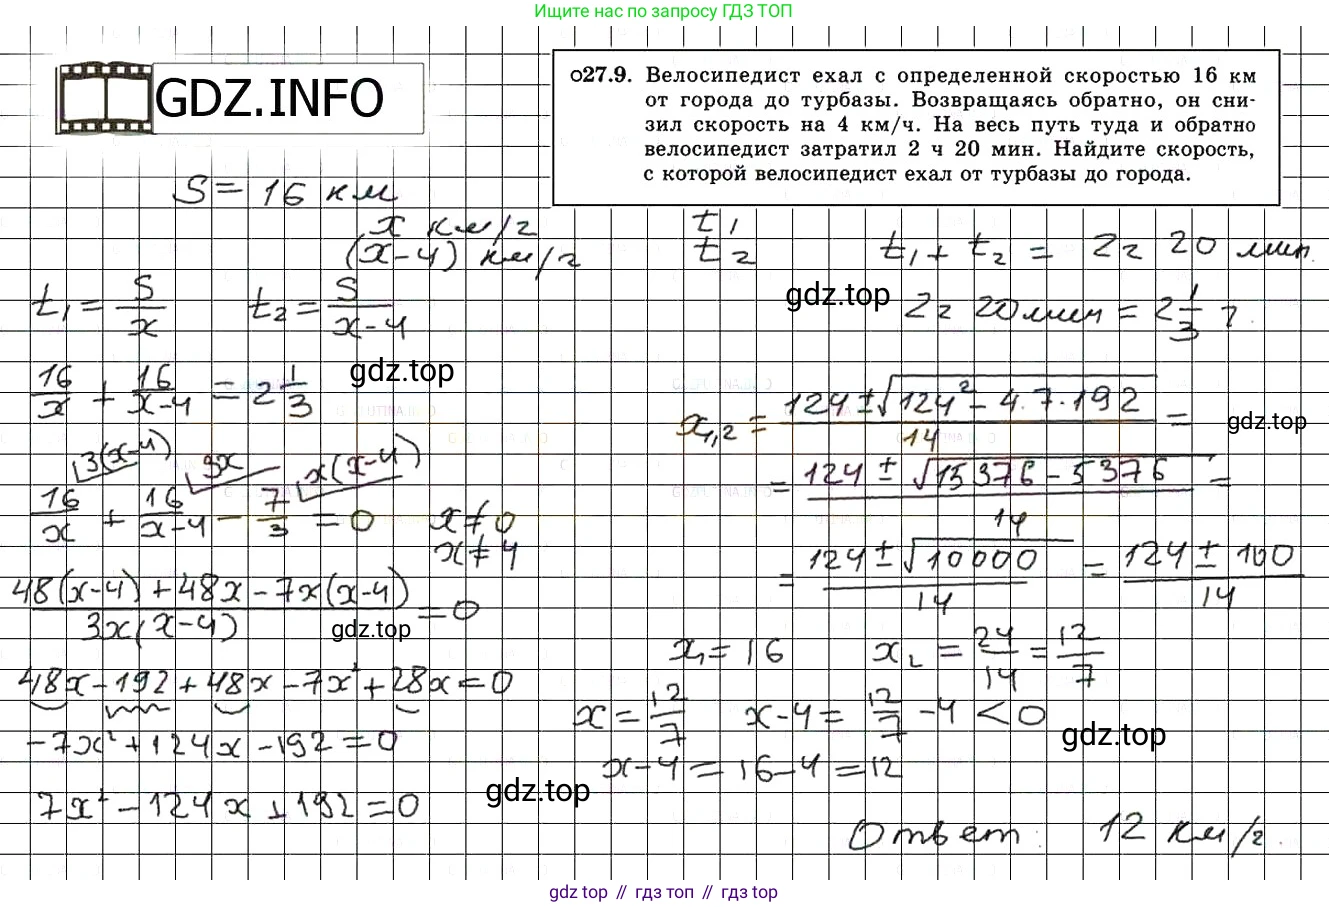 Ищите нас по запросу ГДЗ ТОП
GDZ.INFO
О27.9. Велосипедист ехал с определенной скоростью 16 км
от города до турбазы. Возвращаясь обратно, он сни-
зил скорость на 4 км/ч. На весь путь туда и обратно
велосипедист затратил 2 ч 20 мин. Найдите скорость,
с которой велосипедист ехал от турбазы до города.
S = 16 км
x км/ч t₁
(x-4) км/ч t₂
t₁ + t₂ = 2ч 20 мин.
t₁ = S/x t₂ = S/(x-4)
gdz.top
2ч 20мин = 2 1/3 ч.
gdz.top
16/x + 16/(x-4) = 2 1/3
3(x-4) 3x x(x-4)
16/x + 16/(x-4) - 7/3 = 0 x≠0
x≠4
(48(x-4)+48x-7x(x-4))/(3x(x-4)) = 0
gdz.top
48x-192+48x-7x²+28x=0
-7x²+124x-192=0
7x²-124x+192=0
gdz.top
x₁,₂ = (124±√(124²-4·7·192))/14 =
gdz.top
= (124±√(15376-5376))/14 =
= (124±√10000)/14 = (124±100)/14
x₁=16 x₂ = 24/14 = 12/7
x = 12/7 x-4 = 12/7 -4 <0
gdz.top
x-4=16-4=12
Ответ: 12 км/ч.
gdz top // гдз топ // гдз top